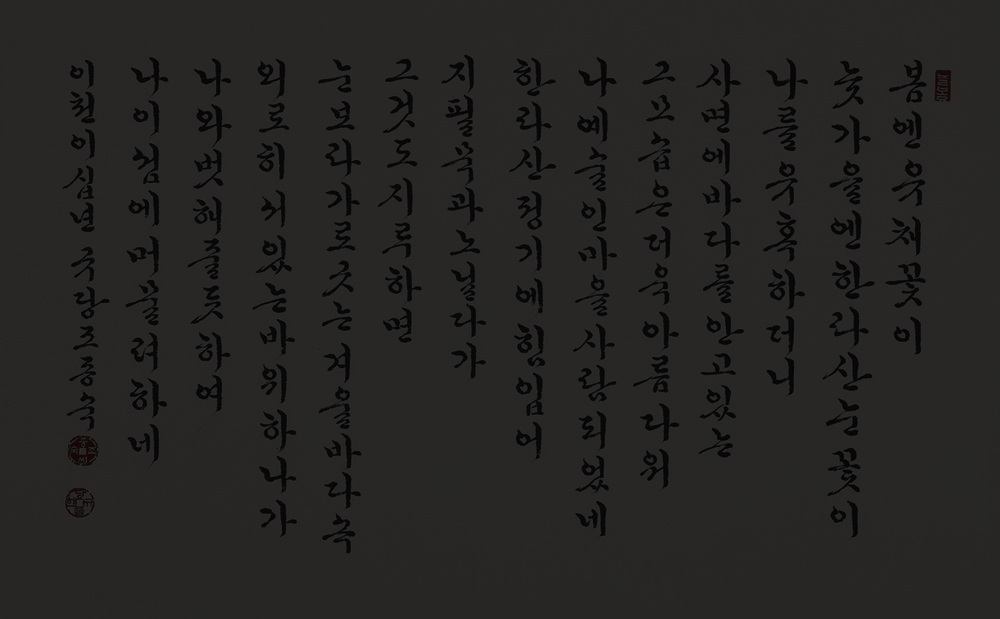 봄엔유채꽃이
늦가을엔한라산눈꽃이
나를유혹하더니
사면에바다를안고있는
그모습은더욱아름다워
나예술인마을사람되었네
한라산정기에힘입어
지필묵과노닐다가
그것도지루하면
눈보라가로긋는겨울바다속
외로히서있는바위하나가
나와벗해줄듯하여
나이섬에머물려하네
이천이십년 규당조종숙